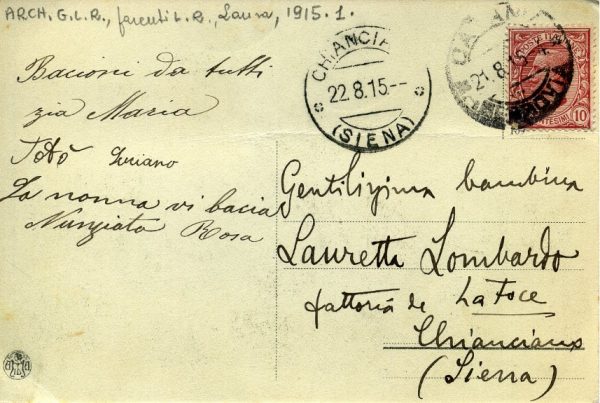 ARCH. G.L.R., parenti L.R., Laura, 1915.1.
Bacioni da tutti
zia Maria
Totò Luciano
La nonna vi bacia
Nunziata Rosa
CHIANCIA
22.8.15.--
(SIENA)
21.8.15
10
Gentilissima bambina
Lauretta Lombardo
fattoria de La Foce
Chianciano
(Siena)